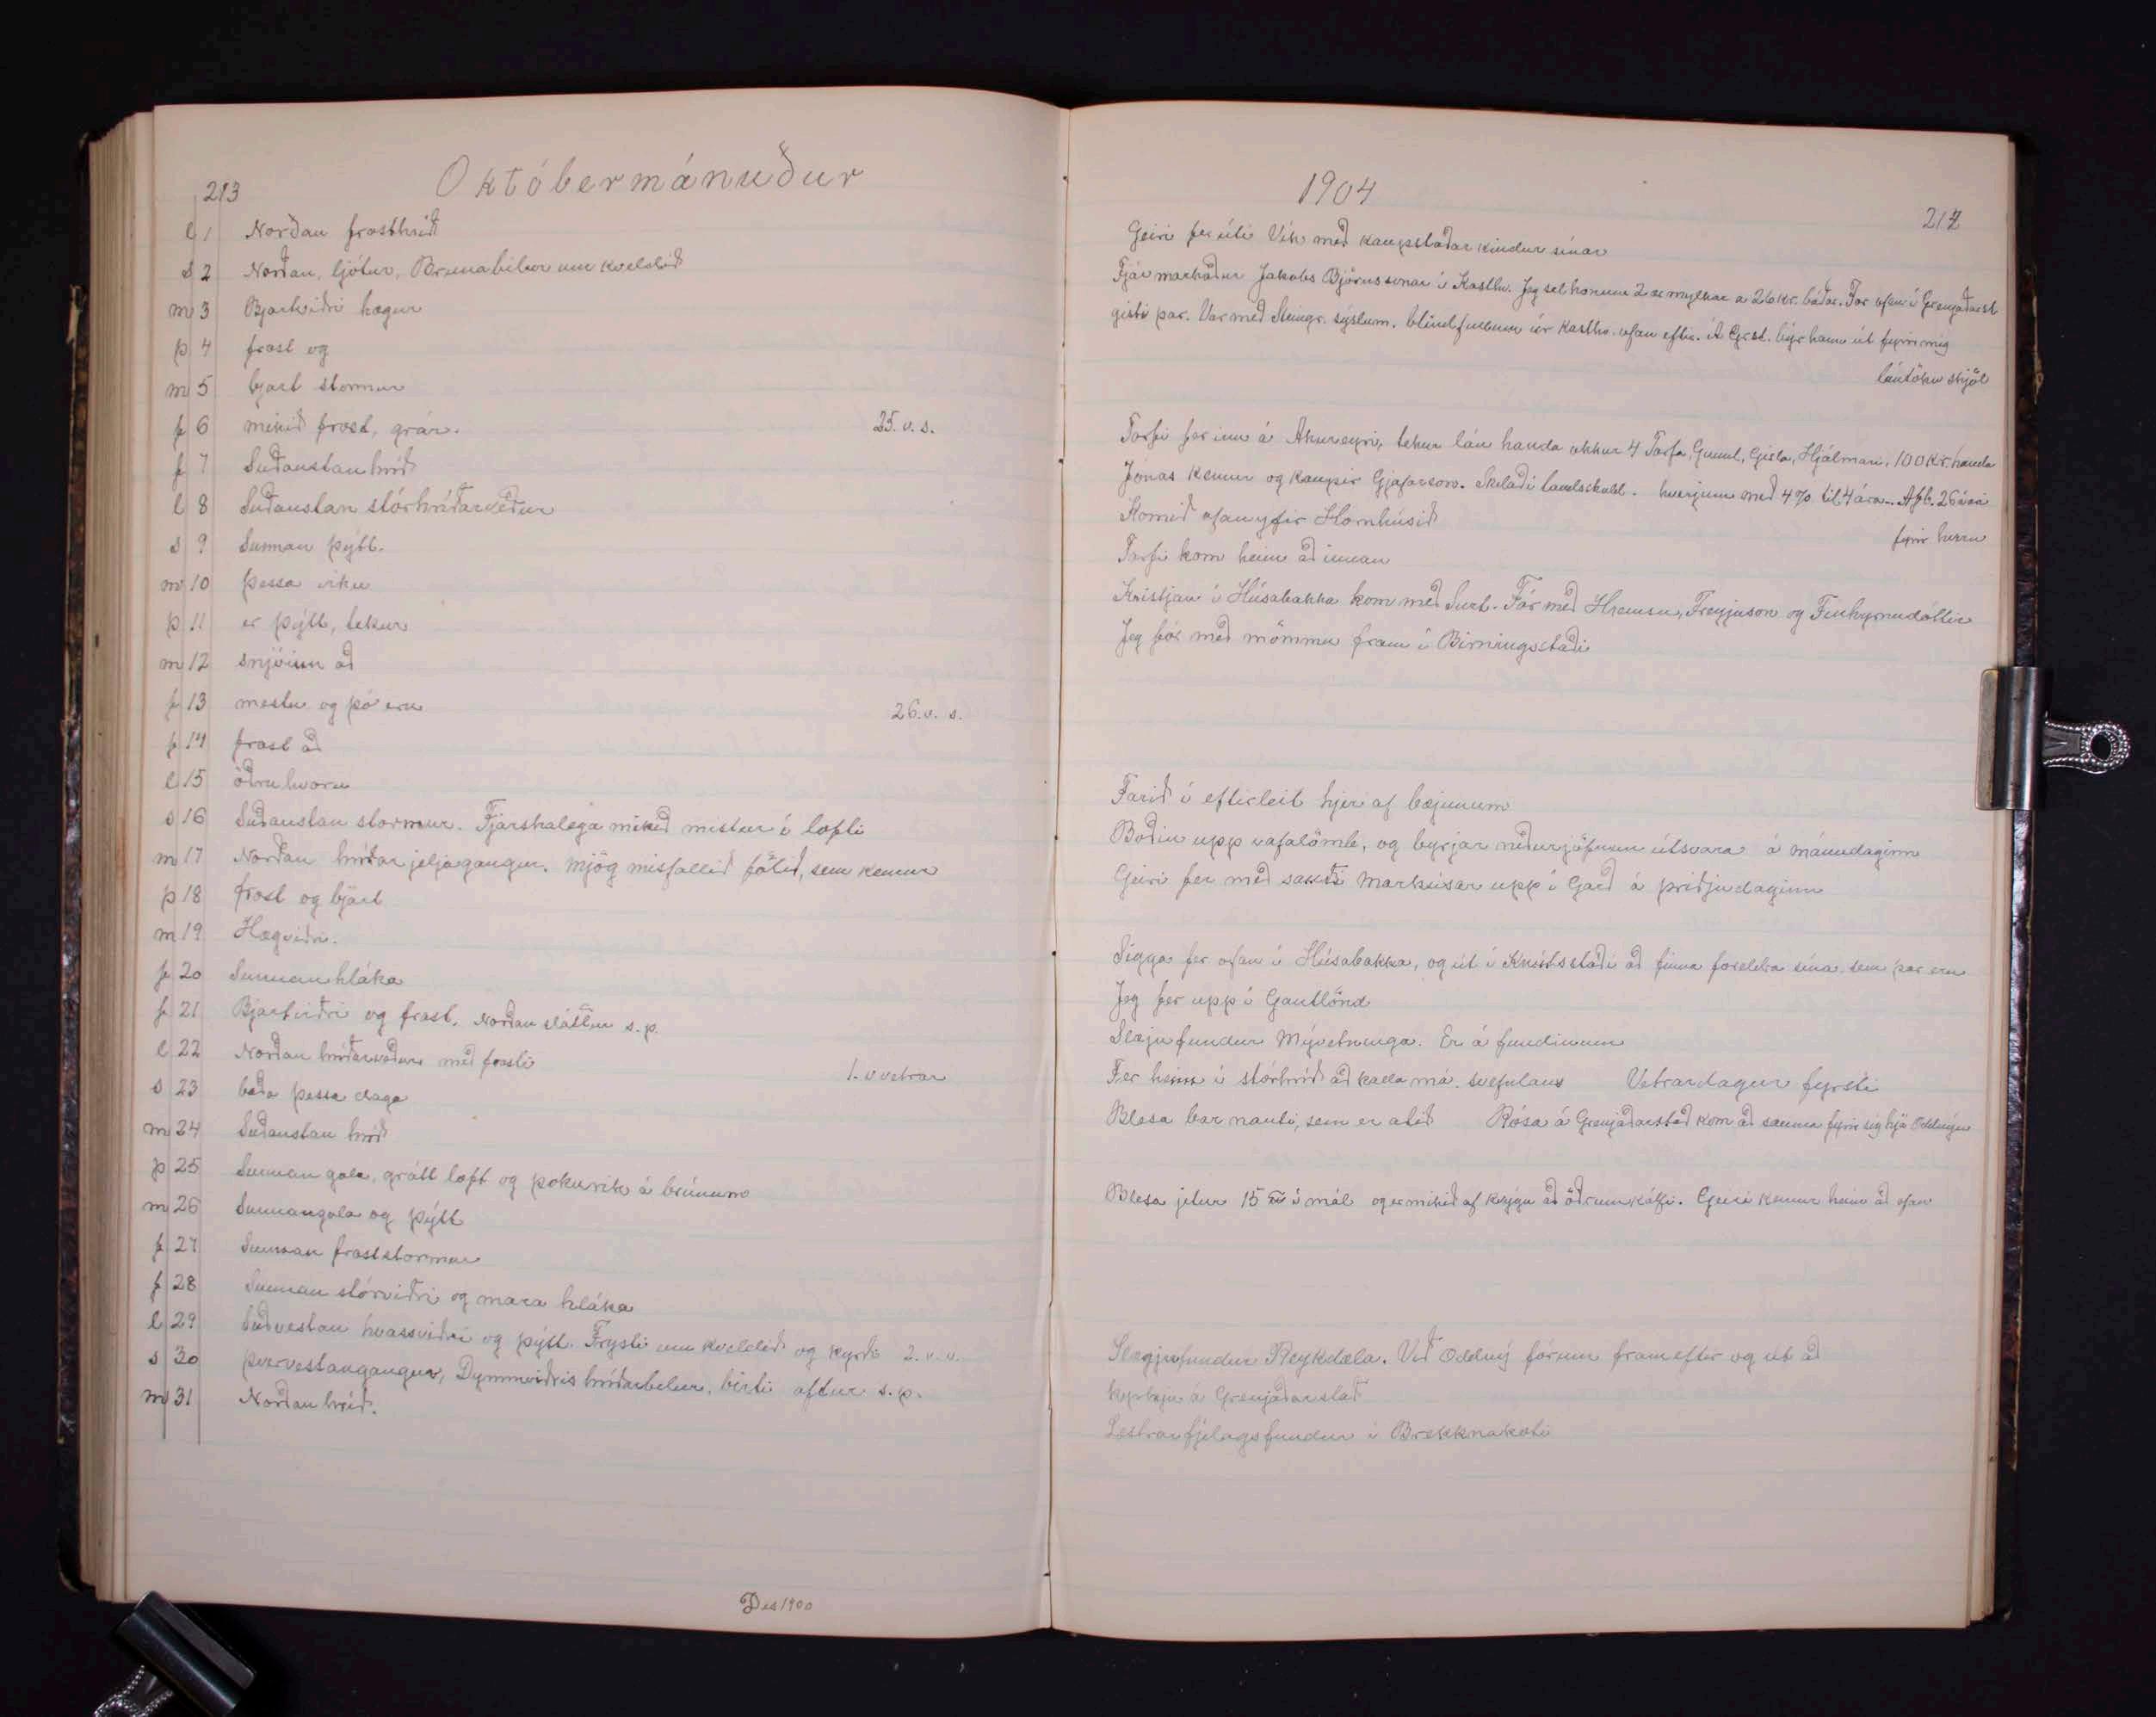 213
Októbermánuður
l 1 Norðan frosthríð
s 2 Norðan, ljótur, Brunabilur um kveldið
m 3 Bjartviðri hægur
þ 4 frost og
m 5 bjart stormur
f 6 mikið frost, grár. 25. v. s.
f 7 Suðaustan hríð
l 8 Suðaustan stórhríðarveður
s 9 Sunnan þýtt.
m 10 þessa viku
þ 11 er þýtt, tekur
m 12 snjóinn að
f 13 mestu og þó eru 26. v. s.
f 14 frost að
l 15 öðru hvoru
s 16 Suðaustan stormur. Fjárskalega mikið mistur í lofti
m 17 Norðan hríðar jeljagangur. mjög misfallið fölið, sem kemur
þ 18 frost og bjart
m 19 Hægviðri.
f 20 Sunnan hláka
f 21 Bjartviðri og frost. Norðan sláttur s. p.
l 22 Norðan hríðarveður með frosti 1. v vetrar
s 23 báða þessa daga
m 24 Suðaustan hríð
þ 25 Sunnan gola, grátt loft og þokuvik á brúnum
m 26 Sunnangola og þýtt
f 27 Sunnan froststormur
f 28 Sunnan stórviðri og mara hláka
l 29 Suðvestan hvassviðri og þýtt. Frysti um kveldið og kyrði 2. v. v.
s 30 Þvervestangangur, Dymmviðris hríðarbelur, birti aftur s. p.
m 31 Norðan hríð.
Des 1900
1904
214
Geiri fer út í Vík með kaupstaðar kindur sínar
Fjármarkaður Jakobs Björnssonar í Kasthv. Jeg sel honum 2 ær mylkar a 26 kr. báðar. Fór ofan í Grenjaðarst
gisti þar. Var með Steingr. sýslum. blindfullum úr Kasthv. ofan eftir. Á Grst. býr hann út fyrir mig
lántöku skjöl
Torfi fer inn á Akureyri, tekur lán handa okkur 4 Torfa, Gunnl, Gisla, Hjálmari, 100 kr. handa
Jónas kemur og kaupir Gjafarson. Skilaði landskuld. hverjum með 4% til 4 ára. Afb. 26 á ári
Komið ofanyfir Hornhúsið fyrir hvern
Torfi kom heim að innan
Kristjan í Húsabakka kom með Surt. Fór með Hremsu, Freyjuson og Finhyrnudóttir
Jeg fór með mömmu fram í Birningsstaði
Farið í eftirleit hjer af bæjunum
Boðin upp vafalömb, og byrjar niðurjöfnun útsvara á mánudaginn
Geiri fer með sauði Markúsar upp í Garð á þriðjudaginn
Sigga fer ofan í Húsabakka, og út í Knútsstaði að finna foreldra sína, sem þar eru
Jeg fer upp í Gautlönd
Slægjufundur Mývetninga. Er á fundinum
Fer heim í stórhríð að kalla má. svefnlaus Vetrardagur fyrsti
Blesa bar nauti, sem er alið Rósa á Grenjaðarstað kom að sauma fyrir sig hjá Oddnýju
Blesa jetur 15 í mál og er mikið af kýrgu að öðrum kálfi. Geiri kemur heim að ofan
Slægjufundur Reykdæla. Við Oddný fórum fram eftir og út að
kyrkju á Grenjaðarstað
Lestrarfjelagsfundur í Brekknakoti